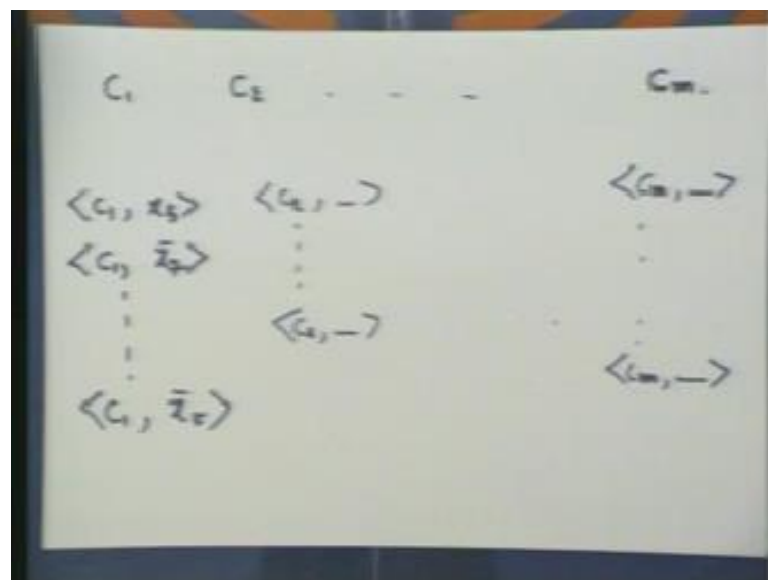 C₁ C₂ - - - Cₘ.
<C₁, x₅> <C₂, _> <Cₘ, _>
<C₁, x̄₇>
<C₂, _>
<Cₘ, _>
<C₁, >